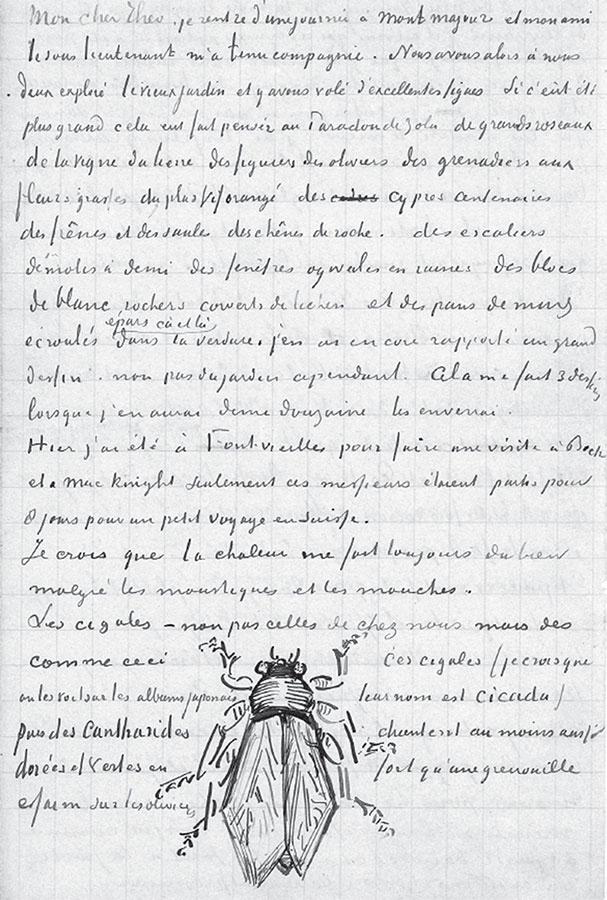 Mon cher Theo. je rentre d'une journée à Mont majour et mon ami
le sous lieutenant m'a tenu compagnie. Nous avons alors à nous
deux exploré le vieux jardin et y avons volé d'excellentes figues Si c'eut été
plus grand cela eut fait penser au Paradou de Zola de grands roseaux
de la vigne du lierre des figuiers des oliviers des grenadiers aux
fleurs grasses du plus vif orangé des cypres centenaires
des frênes et des saules des chênes de roche. des escaliers
démolis à demi des fenêtres ogivales en ruines des blocs
de blanc rochers couverts de lichen et des pans de murs
épars cà et là
écroulés dans la verdure, j'en ai encore rapporté un grand
dessin. non pas du jardin cependant. Cela me fait 3 dessins
lorsque j'en aurai demie douzaine les enverrai.
Hier j'ai été à Font-vieilles pour faire une visite à Bock
et a Mac Knight seulement ces messieurs étaient partis pour
8 jours pour un petit voyage en Suisse.
Je crois que la chaleur me fait toujours du bien
malgré les moustiques et les mouches.
Les cigales – non pas celles de chez nous mais des
comme ceci
on les voit sur les albums japonais
puis des Cantharides
dorées et vertes en
essaim sur les oliviers
ces cigales (je crois que
leur nom est cicada)
chantent au moins aussi
fort qu'une grenouille